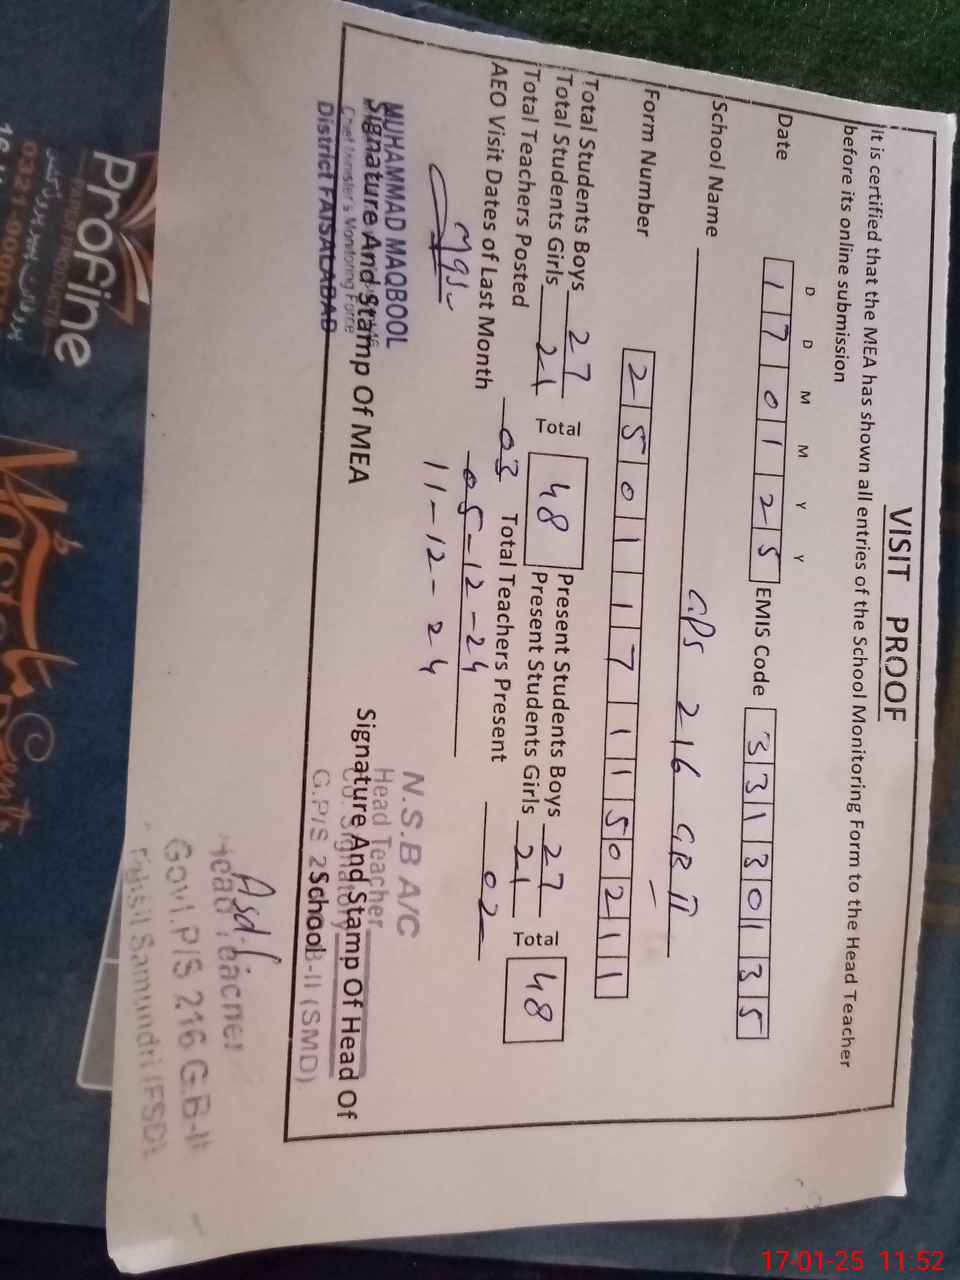 VISIT PROOF
It is certified that the MEA has shown all entries of the School Monitoring Form to the Head Teacher
before its online submission
D D M M Y Y
Date 1 7 0 1 2 5 EMIS Code 3 3 1 3 0 1 3 5
School Name GPS 216 GB II
Form Number 2 5 0 1 1 7 1 1 5 0 2 1 1
Total Students Boys 27 Total 48 Present Students Boys 27 Total 48
Total Students Girls 21 Present Students Girls 21
Total Teachers Posted 03 Total Teachers Present 02
AEO Visit Dates of Last Month 05-12-24
11-12-24
MUHAMMAD MAQBOOL
Signature And Stamp Of MEA
Chief Minister's Monitoring Force
District FAISALABAD
N.S.B A/C
Head Teacher
Signature And Stamp Of Head Of
Co. Signatory
School
G.P/S 2 B-II (SMD)
Head Teacher
Govt.P/S 216 G.B-II
Samundri (FSD)
Profine
17-01-25 11:52